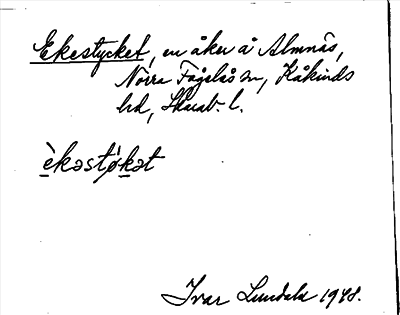 Ekestycket, en åker å Almnäs,
Norra Fågelås sn, Kåkinds
hd, Skarab. l.
èkəstø̀kət
Ivar Lundahl 1948.